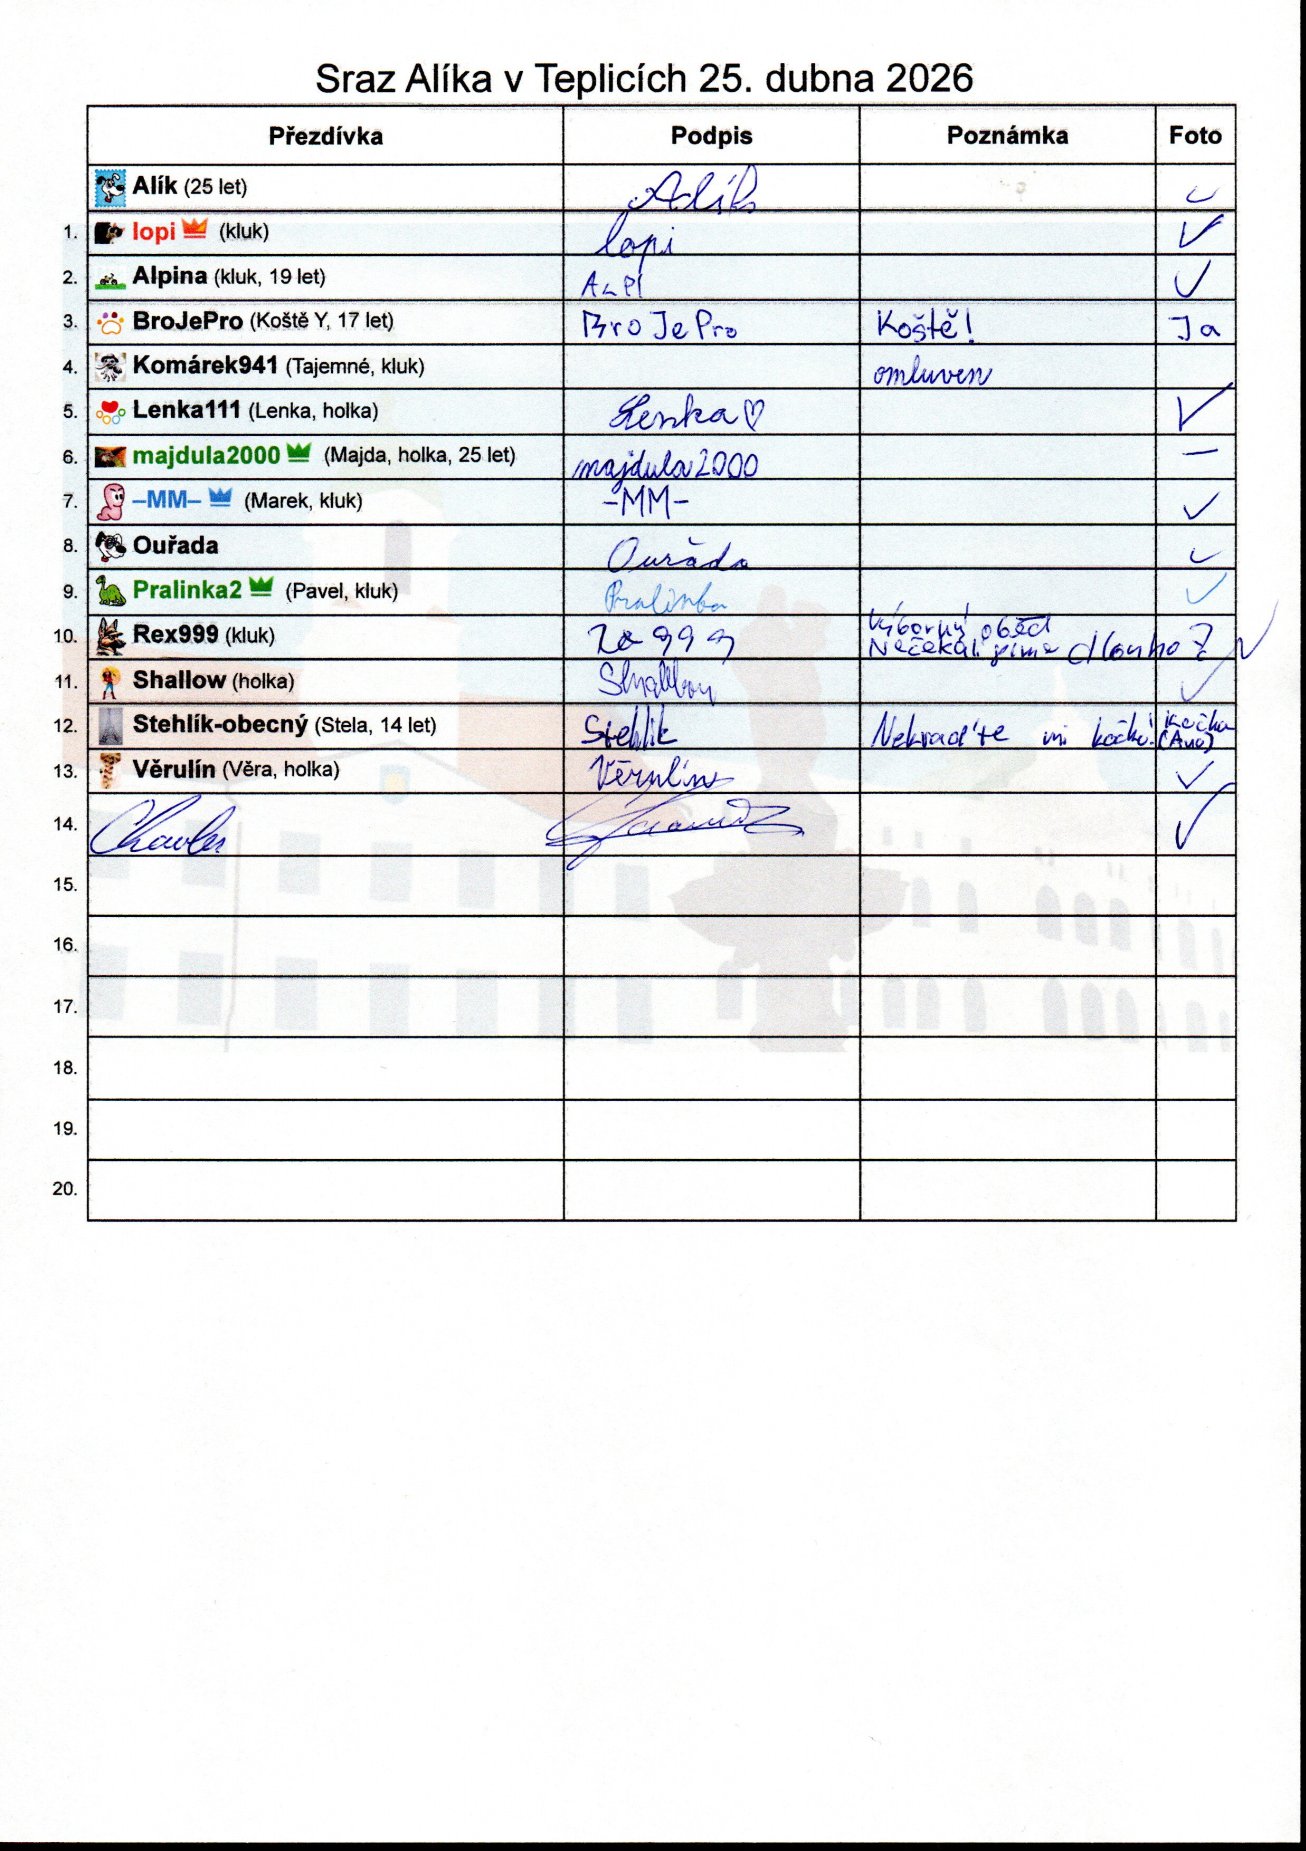 Sraz Alíka v Teplicích 25. dubna 2026
Přezdívka Podpis Poznámka Foto
Alík (25 let) Alík
1. lopi (kluk) lopi
2. Alpina (kluk, 19 let) ALPI
3. BroJePro (Koště Y, 17 let) BroJePro Koště! Ja
4. Komárek941 (Tajemné, kluk) omluven
5. Lenka111 (Lenka, holka) Lenka♡
6. majdula2000 (Majda, holka, 25 let) majdula2000 –
7. –MM– (Marek, kluk) -MM-
8. Ouřada Ouřada
9. Pralinka2 (Pavel, kluk) Pralinka
Výborný oběd
10. Rex999 (kluk) Nečekali jsme dlouho
11. Shallow (holka) Shallow
12. Stehlík-obecný (Stela, 14 let) Stehlík Nekraďte mi kočku! Kočka
(Ano)
13. Věrulín (Věra, holka) Věrulín
14.
15.
16.
17.
18.
19.
20.